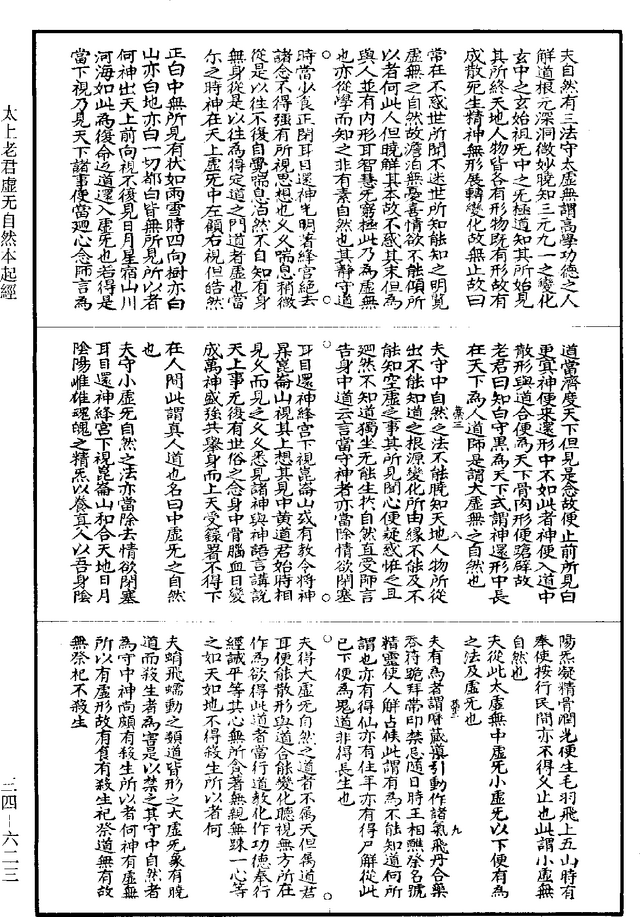 夫自然有三法守太虛無謂高學功德之人
解道根元深洞微妙曉知三元九一之變化
玄中之玄始祖无中之无極道知其所始見
其所終天地人物皆各有形物既有形故有
成散死生精神無形展轉變化故無止故曰
常在不惑世所聞不迷世所知能知之明覽
虛無之自然故澹泊無憂喜情欲不能傾所
以者何此人但曉解其本故不惑其末但為
與人並有內形耳智慧无窮極此乃為虛無
也亦從學而知之非有素自然也其靜守道
時當少食正閉耳目還神光明著絳宮絕去
諸念不得強有所視思想也久久喘息稍微
從是以往不復自覺喘息浩然不自知有身
無身從是以往為得定道之門道者虛也當
尒之時神在天上虛无中左顧右視但皓然
正白中無所見有狀如雨雪時四向樹亦白
山亦白地亦白一切都白皆無所見所以者
何神出天上前向視不後見日月星宿山川
河海如此為復命近道還入虛无也若得是
當下視乃見天下諸事便當迴心念師言為
道當濟度天下但見是念故便止前所見白
更冥神便來還形中不如此者神便入道中
散形與道合便為天下骨肉形便躄辟故
老君曰知白守黑為天下式謂神還形中長
在天下為人道師是謂大虛無之自然也
夫守中自然之法不能曉知天地人物所從
出不能知道之根源變化所由緣不能及不
能知空虛之事其所見聞心便疑惑恠之且
迴然不知道獨坐无能生於自然直受師言
告身中道云言當守神者亦當除情欲閉塞
耳目還神絳宮下視崑崙山或有教令將神
昇崑崙山視其上想其見中黃道君始時相
見久而見之久久悉見諸神與神語言講說
天上事无後有世俗之念身中骨腦血日變
成萬神盛強共轝身而上天受錄署不得下
在人間此謂真人道也名曰中虛无之自然
也
夫守小虛无自然之法亦當除去情欲閉塞
耳目還神絳宮下視崑崙山和合天地日月
陰陽惟惟魂魄之精炁以養真人以吾身陰
陽炁凝精骨潤光便生毛羽飛上五山時有
奉使按行民間亦不得久止也此謂小虛無
自然也
夫從此太虛無中虛无小虛无以下便有為
之法及虛无也
夫有為者謂曆藏導引動作諸氣飛丹合藥
忝待跪拜帶印禁忌隨日時王相醮祭名號
精靈使人解占候此謂有為不能知道何所
謂也亦有得仙亦有住年亦有得尸解從此
已下便為鬼道非得長生也
夫得大虛无自然之道者不屬天但屬道君
耳便能散形與道合能變化聽視無方所在
作為欲得此道者當行道教化作功德奉行
經誡平等其心無所貪著無親無踈一心等
之如天如地不得殺生所以者何
夫蜎飛蠕動之類道皆形之大虛无象有曉
道而殺生者為害是以禁之其守中自然者
為守中神尚頗有殺生所以者何神有虛無
所以有虛形故有食有殺生祀祭道無有故
無祭祀不殺生
八
九
太上老君虛无自然本起經
三四－六二三